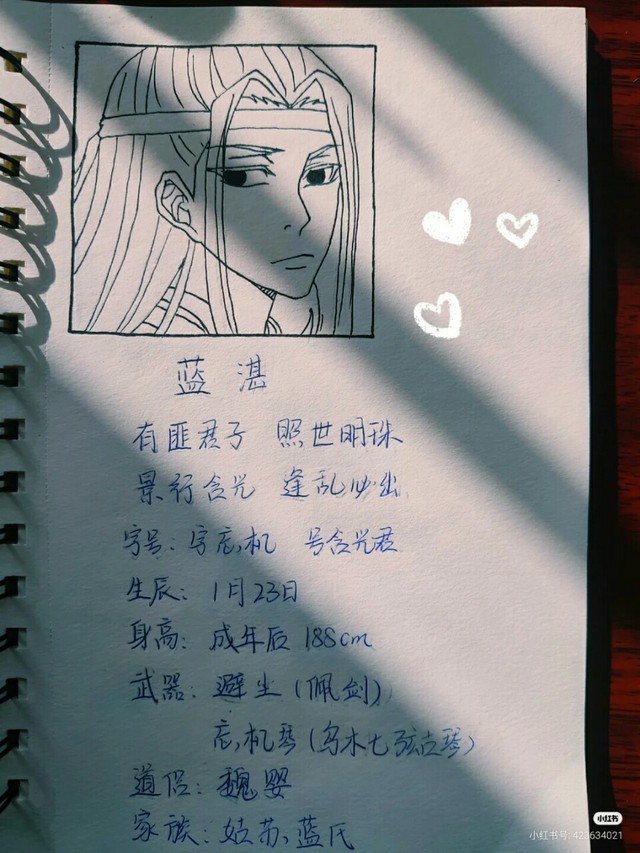 蓝湛
有匪君子 照世明珠
景行含光 逢乱必出
字号：字忘机 号含光君
生辰：1月23日
身高：成年后188cm
武器：避尘（佩剑）
忘机琴（乌木七弦古琴）
道侣：魏婴
家族：姑苏蓝氏
小红书
小红书号: 423634021